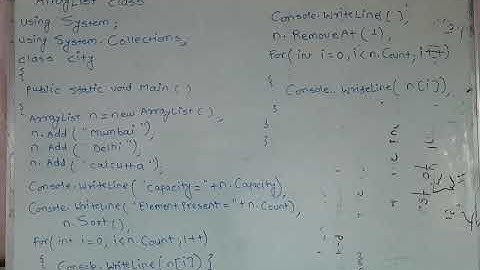 ArrayList class
using System;
using System.Collections;
class city
{
public static void Main()
{
ArrayList n=new ArrayList();
n.Add("Mumbai");
n.Add("Delhi");
n.Add("Calcutta");
Console.WriteLine("Capacity="+n.Capacity);
Console.WriteLine("Element Present="+n.Count);
n.Sort();
for(int i=0; i<n.Count; i++)
{ Console.WriteLine(n[i]); }
Console.WriteLine();
n.RemoveAt(1);
for(int i=0; i<n.Count; i++)
{ Console.WriteLine(n[i]);
}
}
}